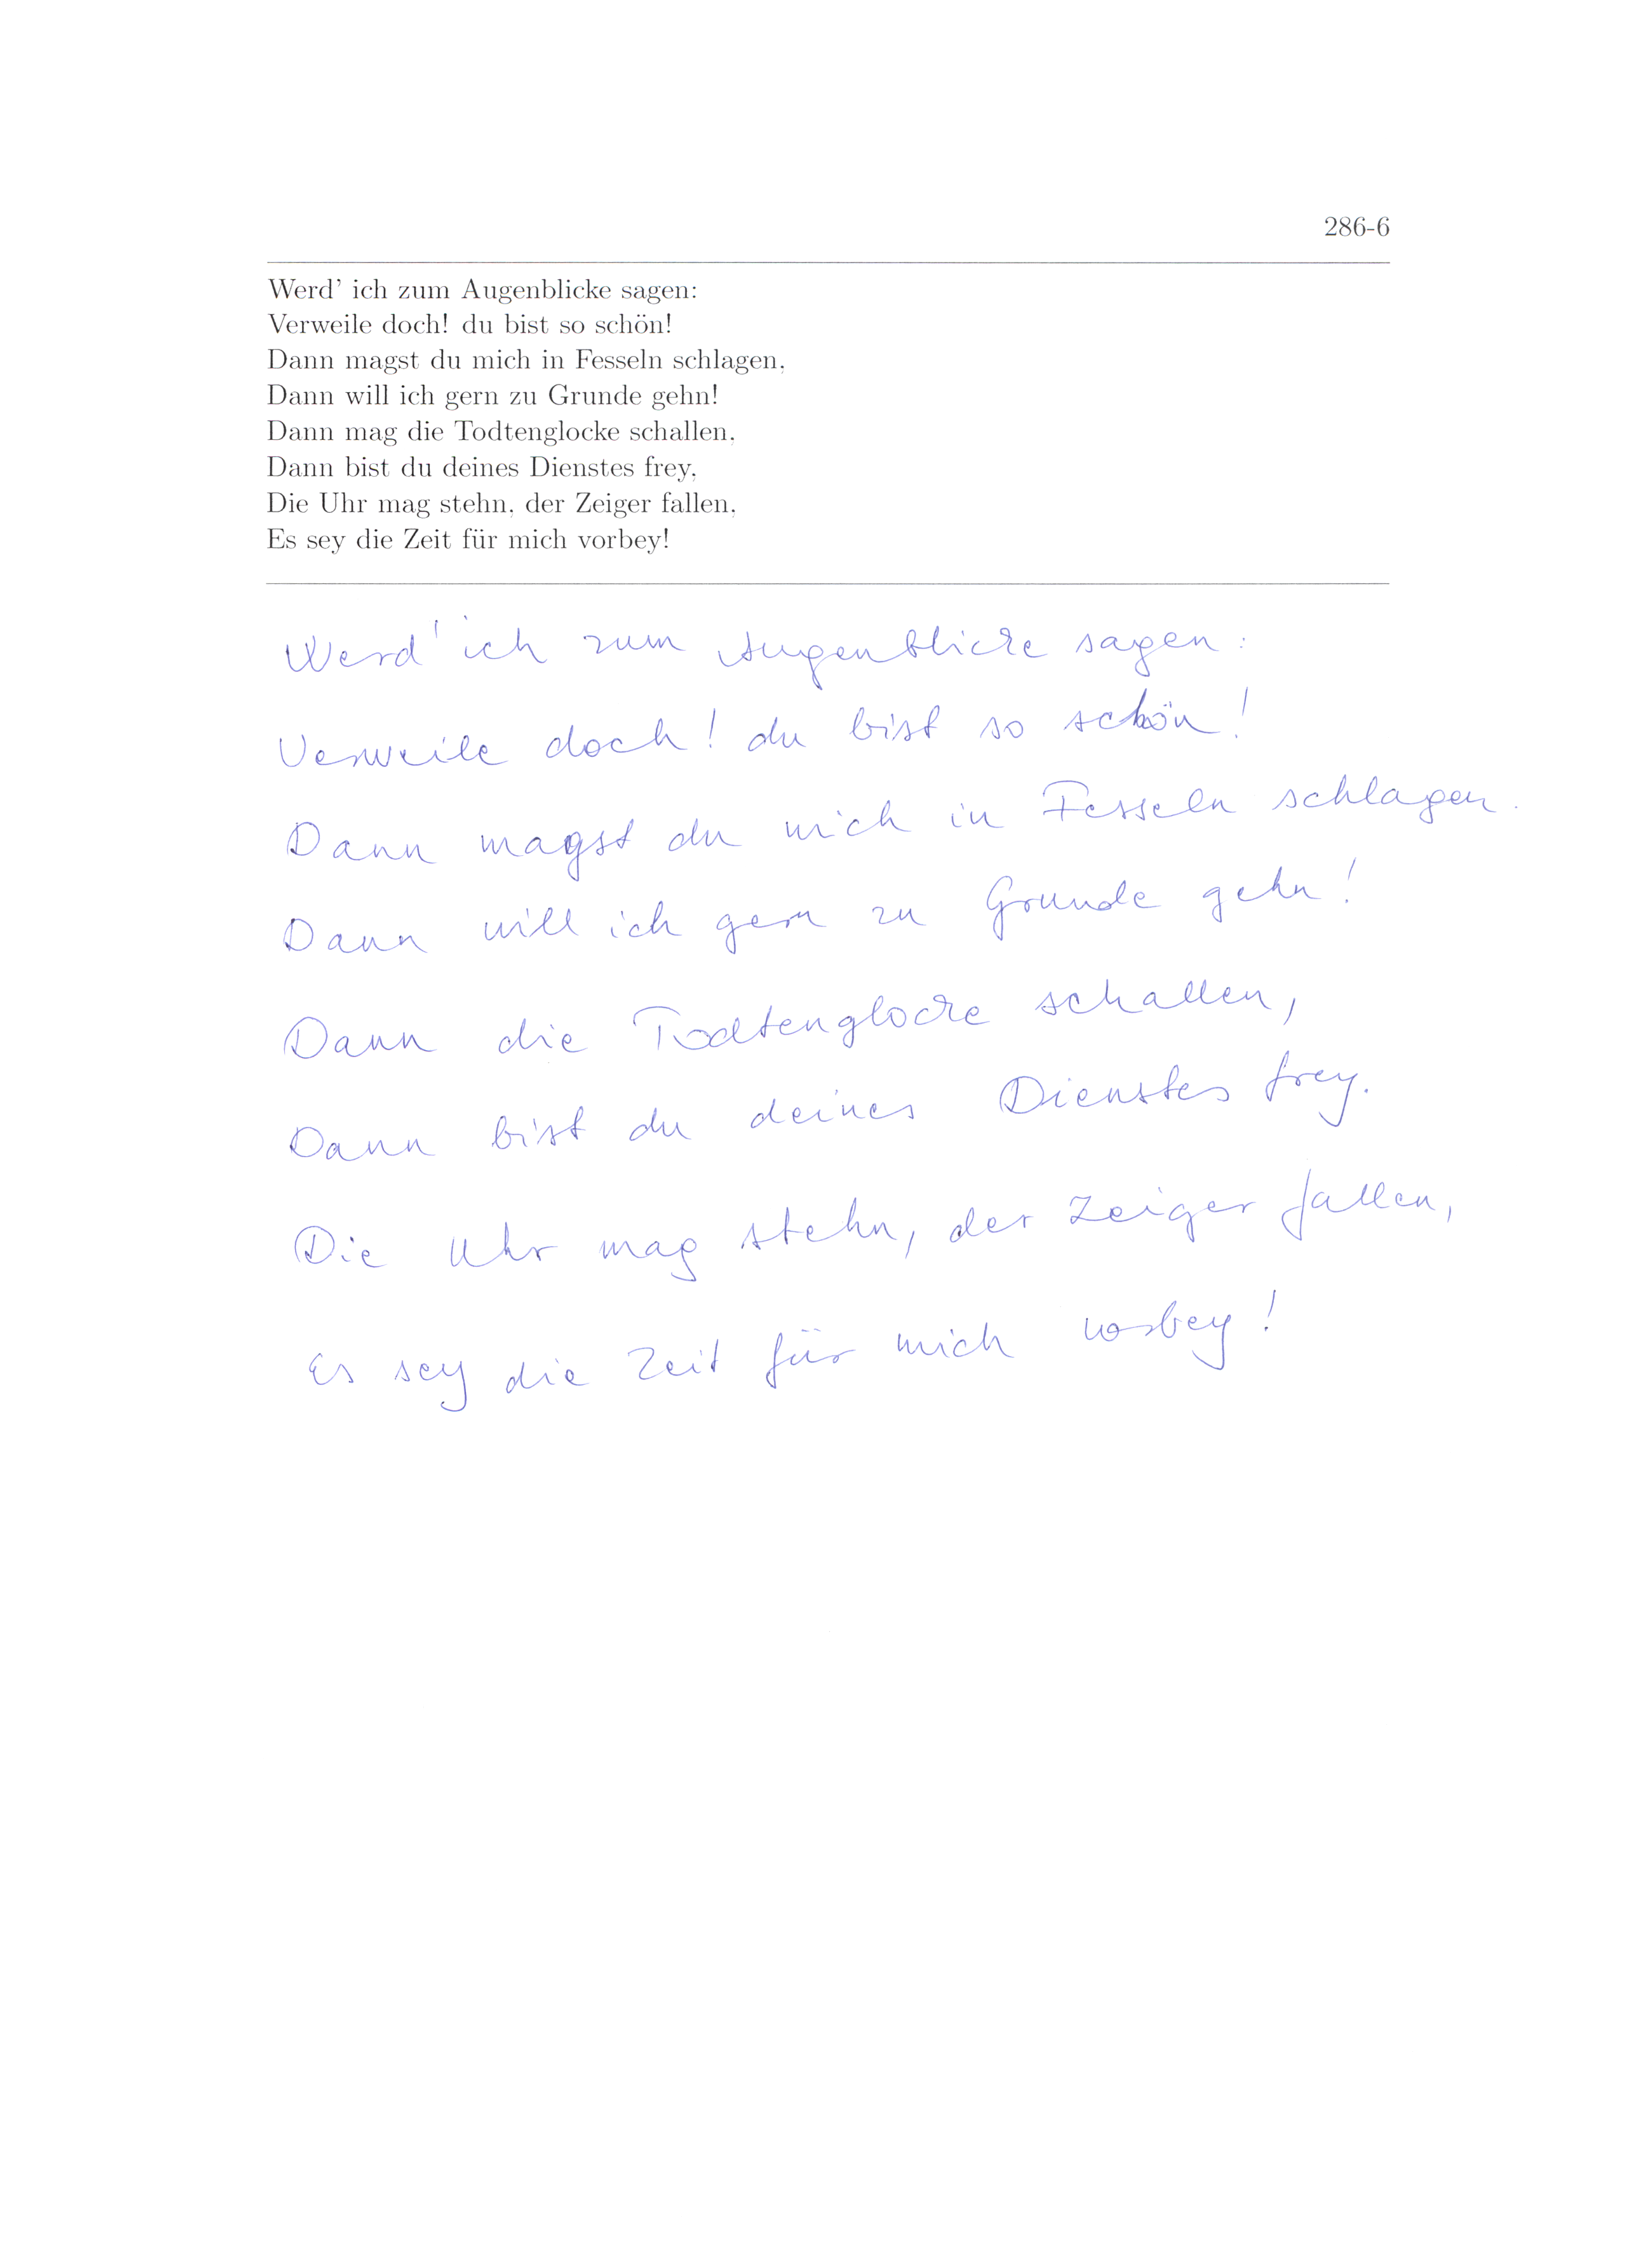 286-6
Werd' ich zum Augenblicke sagen:
Verweile doch! du bist so schön!
Dann magst du mich in Fesseln schlagen,
Dann will ich gern zu Grunde gehn!
Dann mag die Todtenglocke schallen,
Dann bist du deines Dienstes frey,
Die Uhr mag stehn, der Zeiger fallen,
Es sey die Zeit für mich vorbey!
Werd' ich zum Augenblicke sagen:
Verweile doch! du bist so schön!
Dann magst du mich in Fesseln schlagen.
Dann will ich gern zu Grunde gehn!
Dann die Todtenglocke schallen,
Dann bist du deines Dienstes frey.
Die Uhr mag stehn, der Zeiger fallen,
Es sey die Zeit für mich vorbey!